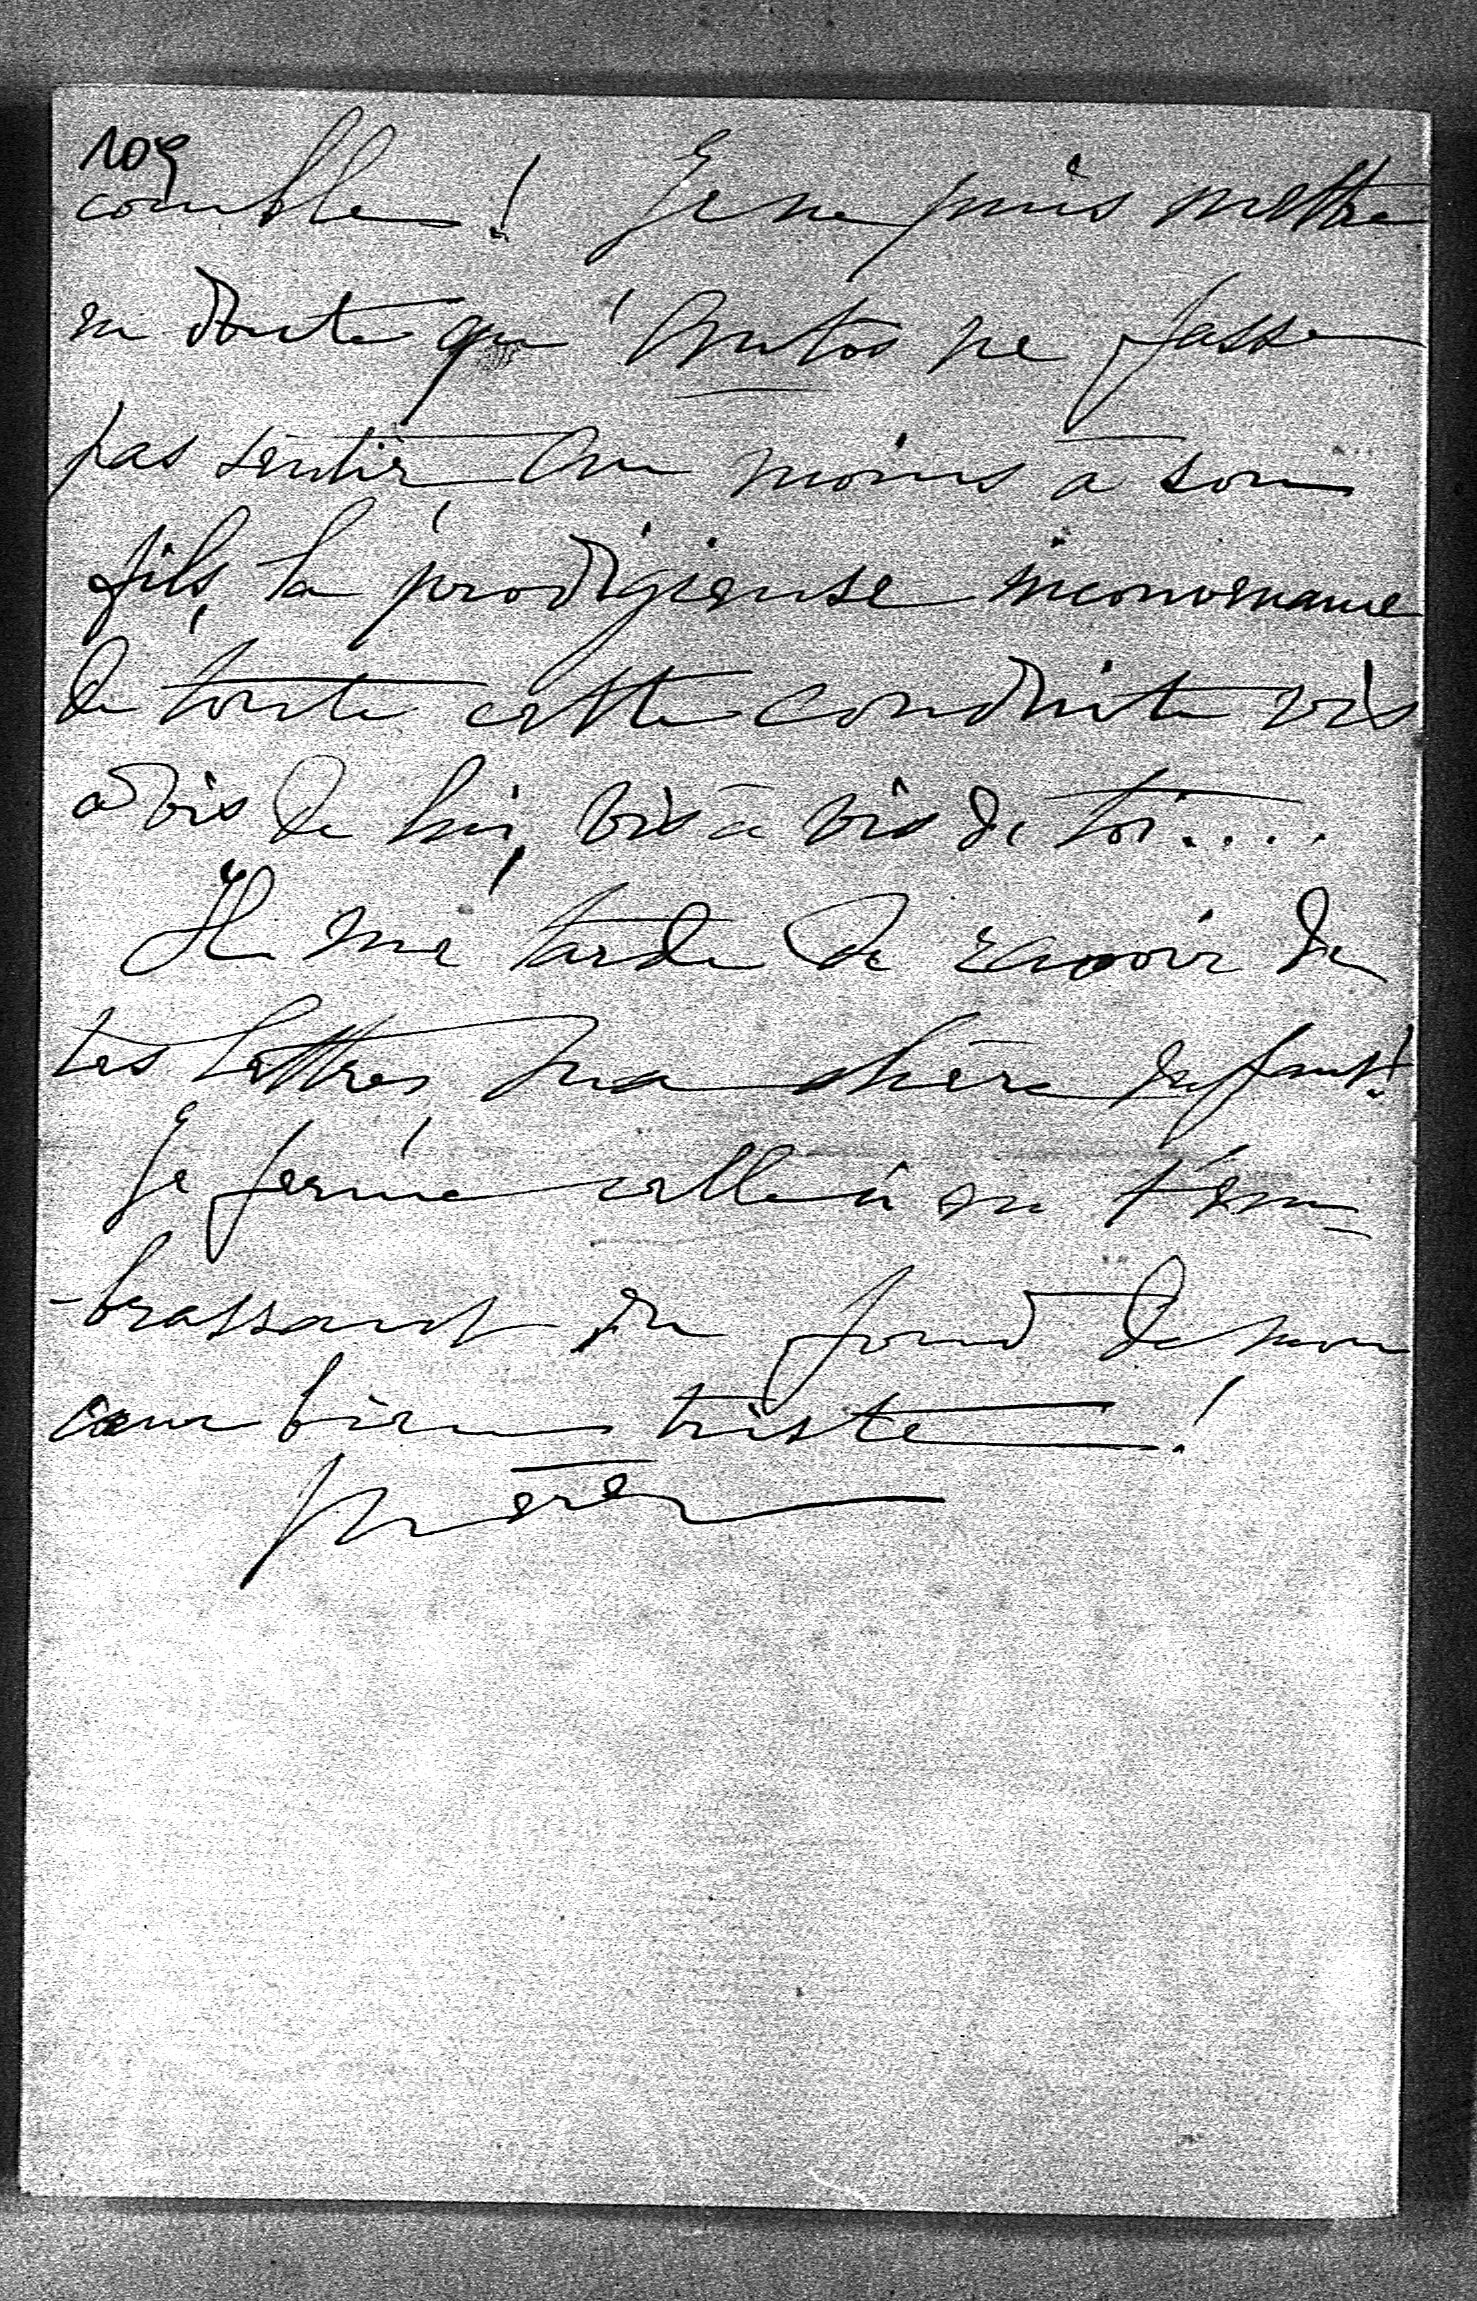 109
comble! Je ne puis mettre
en doute qu'Antos ne fasse
pas sentir, au moins à son
fils, la prodigieuse inconvenance
de toute cette conduite vis
à vis de lui, vis à vis de toi....
Il me tarde de ravoir de
tes lettres ma chère enfant!
Je ferme celle ci en t'em-
-brassant du fond de mon
cœur bien triste!